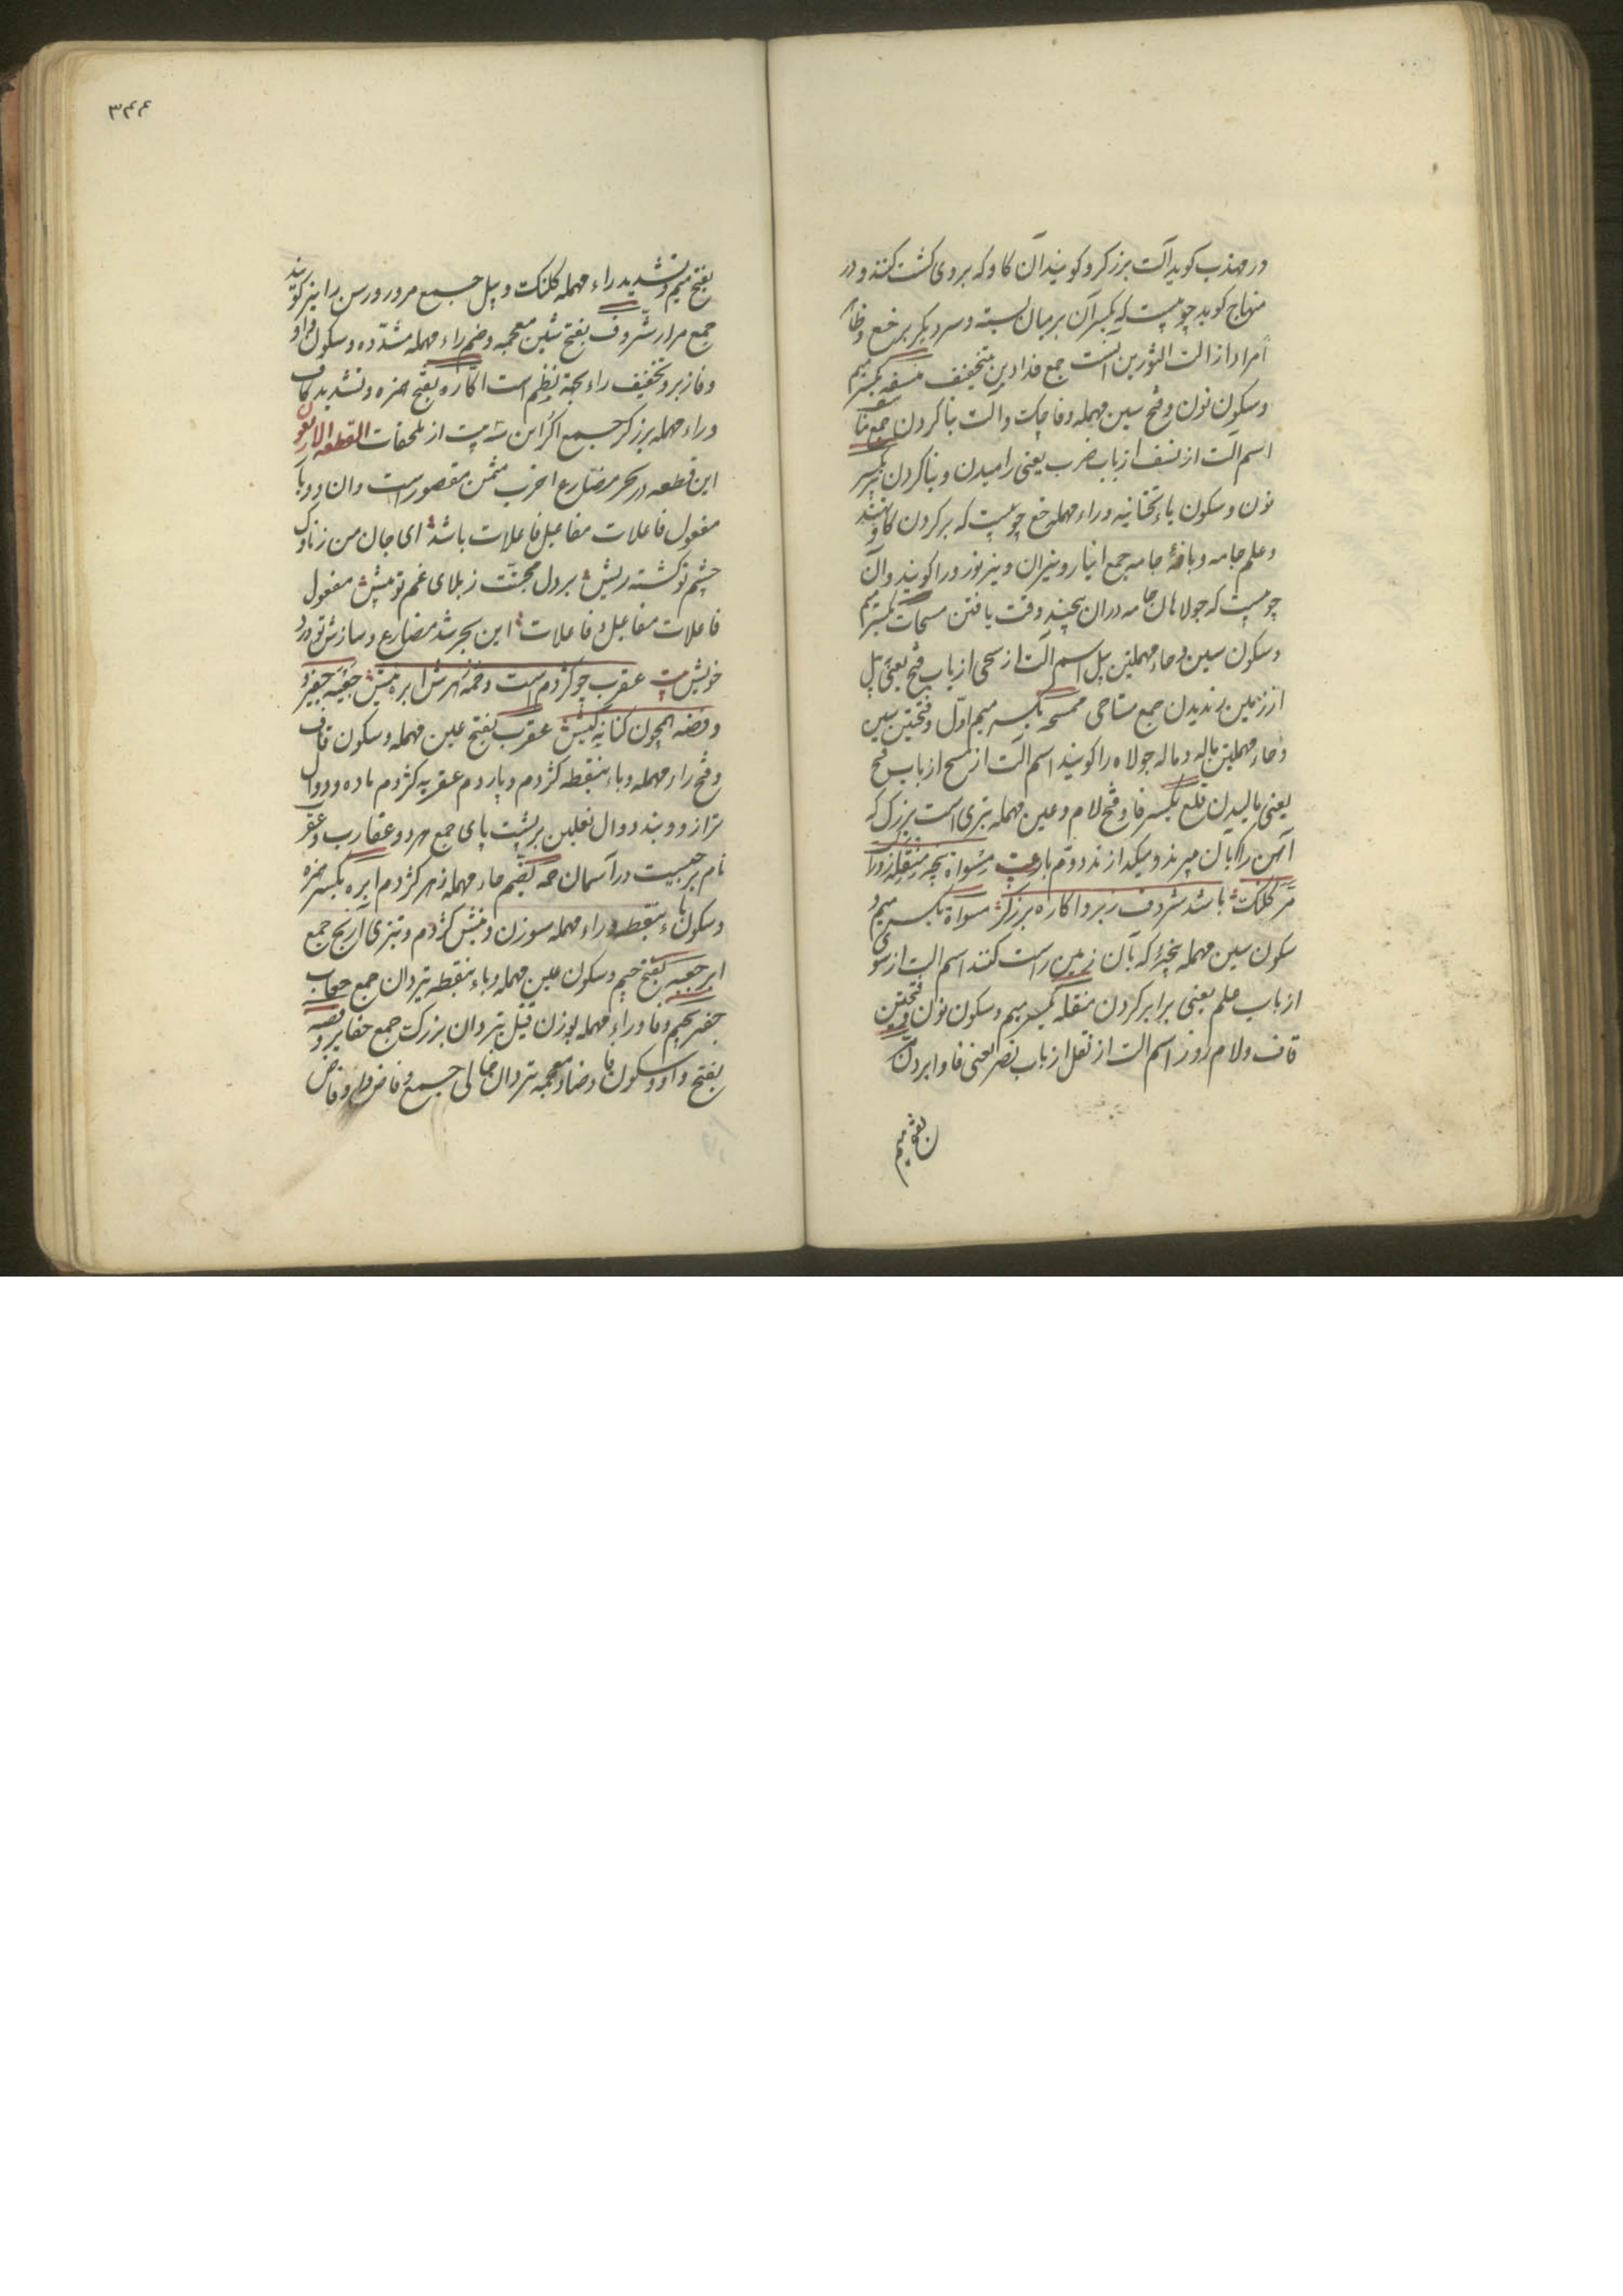 در مهذب کوید آلت برزکر و کویند آن کاو که بروی کشت کنند و در
منهاج کوید چوبیست که یکسر آن بر میان بسته و سر دیکر بر خع و ظاهر
مراد از الت الثورین است جمع فدادین بتخفیف منسفه بکسر میم
وسکون نون و فتح سین مهمله و فا چاک و آلت بنا کردن جمع منا
اسم الت از نسف از باب ضرب یعنی رامیدن و بنا کردن نیر بکسر
نون و سکون یاء تحتانیه و راء مهمله خع چوبیست که بر کردن کاو نهند
و علم جامه و بافهٔ جامه جمع انیار و نیران و نیز نورد را کویند و آن
چوبیست که جولاهان جامه دران پیچند وقت بافتن مسحات بکسر میم
وسکون سین و حاء مهملتین بیل اسم الت از سحی از باب فتح یعنی بیل
از زمین رندیدن جمع مساحی ممسحه بکسر میم اوّل و فتحتین سین
و حاء مهملتین ماله و ماله جولاه را کویند اسم الت از مسح از باب فتح
یعنی مالیدن فلع بکسر فا و فتح لام و عین مهمله تبزی است بزرک که
آهن را بآن میبرند و میکدازند دوم بار بیت مسواة پنجر منقله زورا
مر کلنک باشد شروف زبر و اکاره برزکر مسواة بکسر میم و
سکون سین مهمله پنجرٔ که بآن زمین راست کنند اسم الت از سوی
از باب علم یعنی برابر کردن منقله بکسر میم وسکون نون و فتحتین
قاف و لام زورا اسم الت از نقل از باب نصر یعنی فاوا بردن مر
بفتح میم
۳۴۴
بفتح میم و تشدید راء مهمله کلنک و بیل جمع مرور و رسن را نیز کویند
جمع مرار شروف بفتح شین معجمه و ضم راء مهمله مشدّده و سکون واو
و فا زبر و تخفیف راء بجهة نظم است اکاره بفتح همزه و تشدید کاف
و راء مهمله برزکر جمع اکر این سه بیت از ملحقات القطعه الاربعون
این قطعه در بحر مضارع اخرب مثمن مقصور است و ان دو با
مفعول فاعلات مفاعیل فاعلات باشد ای جان من ز ناوک
چشم تو کشته ریش بر دل محبتت ز بلای غم تو بیش مفعول
فاعلات مفاعیل و فاعلات این بحر شد مضارع و سازش تو ورد
خویش بیت عقرب چو کژدم است و حمه زهرش ابره نیش جعبه جفیر و
وفضه همچون کنانه کیش عقرب بفتح عین مهمله وسکون قاف
و فتح راء مهمله و باء بنقطه کژدم و پاردم عقربه کژدم ماده و دوال
ترازو و بند دوال نعلین بر پشت پای جمع هر دو عقارب و عقرب
نام برجیست در آسمان حمه بضم حاء مهمله زهر کژدم ابره بکسر همزه
و سکون باء بنقطه و راء مهمله سوزن و نیش کژدم و تیزی آرنج جمع
ابر جعبه بفتح جیم وسکون عین مهمله و باء بنقطه تیردان جمع جعاب
جفیر بجیم و فا و راء مهمله بوزن قتیل تیردان بزرک جمع جفایر وفضه
بفتح واو و سکون فا و ضاد معجمه تیردان خالی جمع وفاض و اوفاض